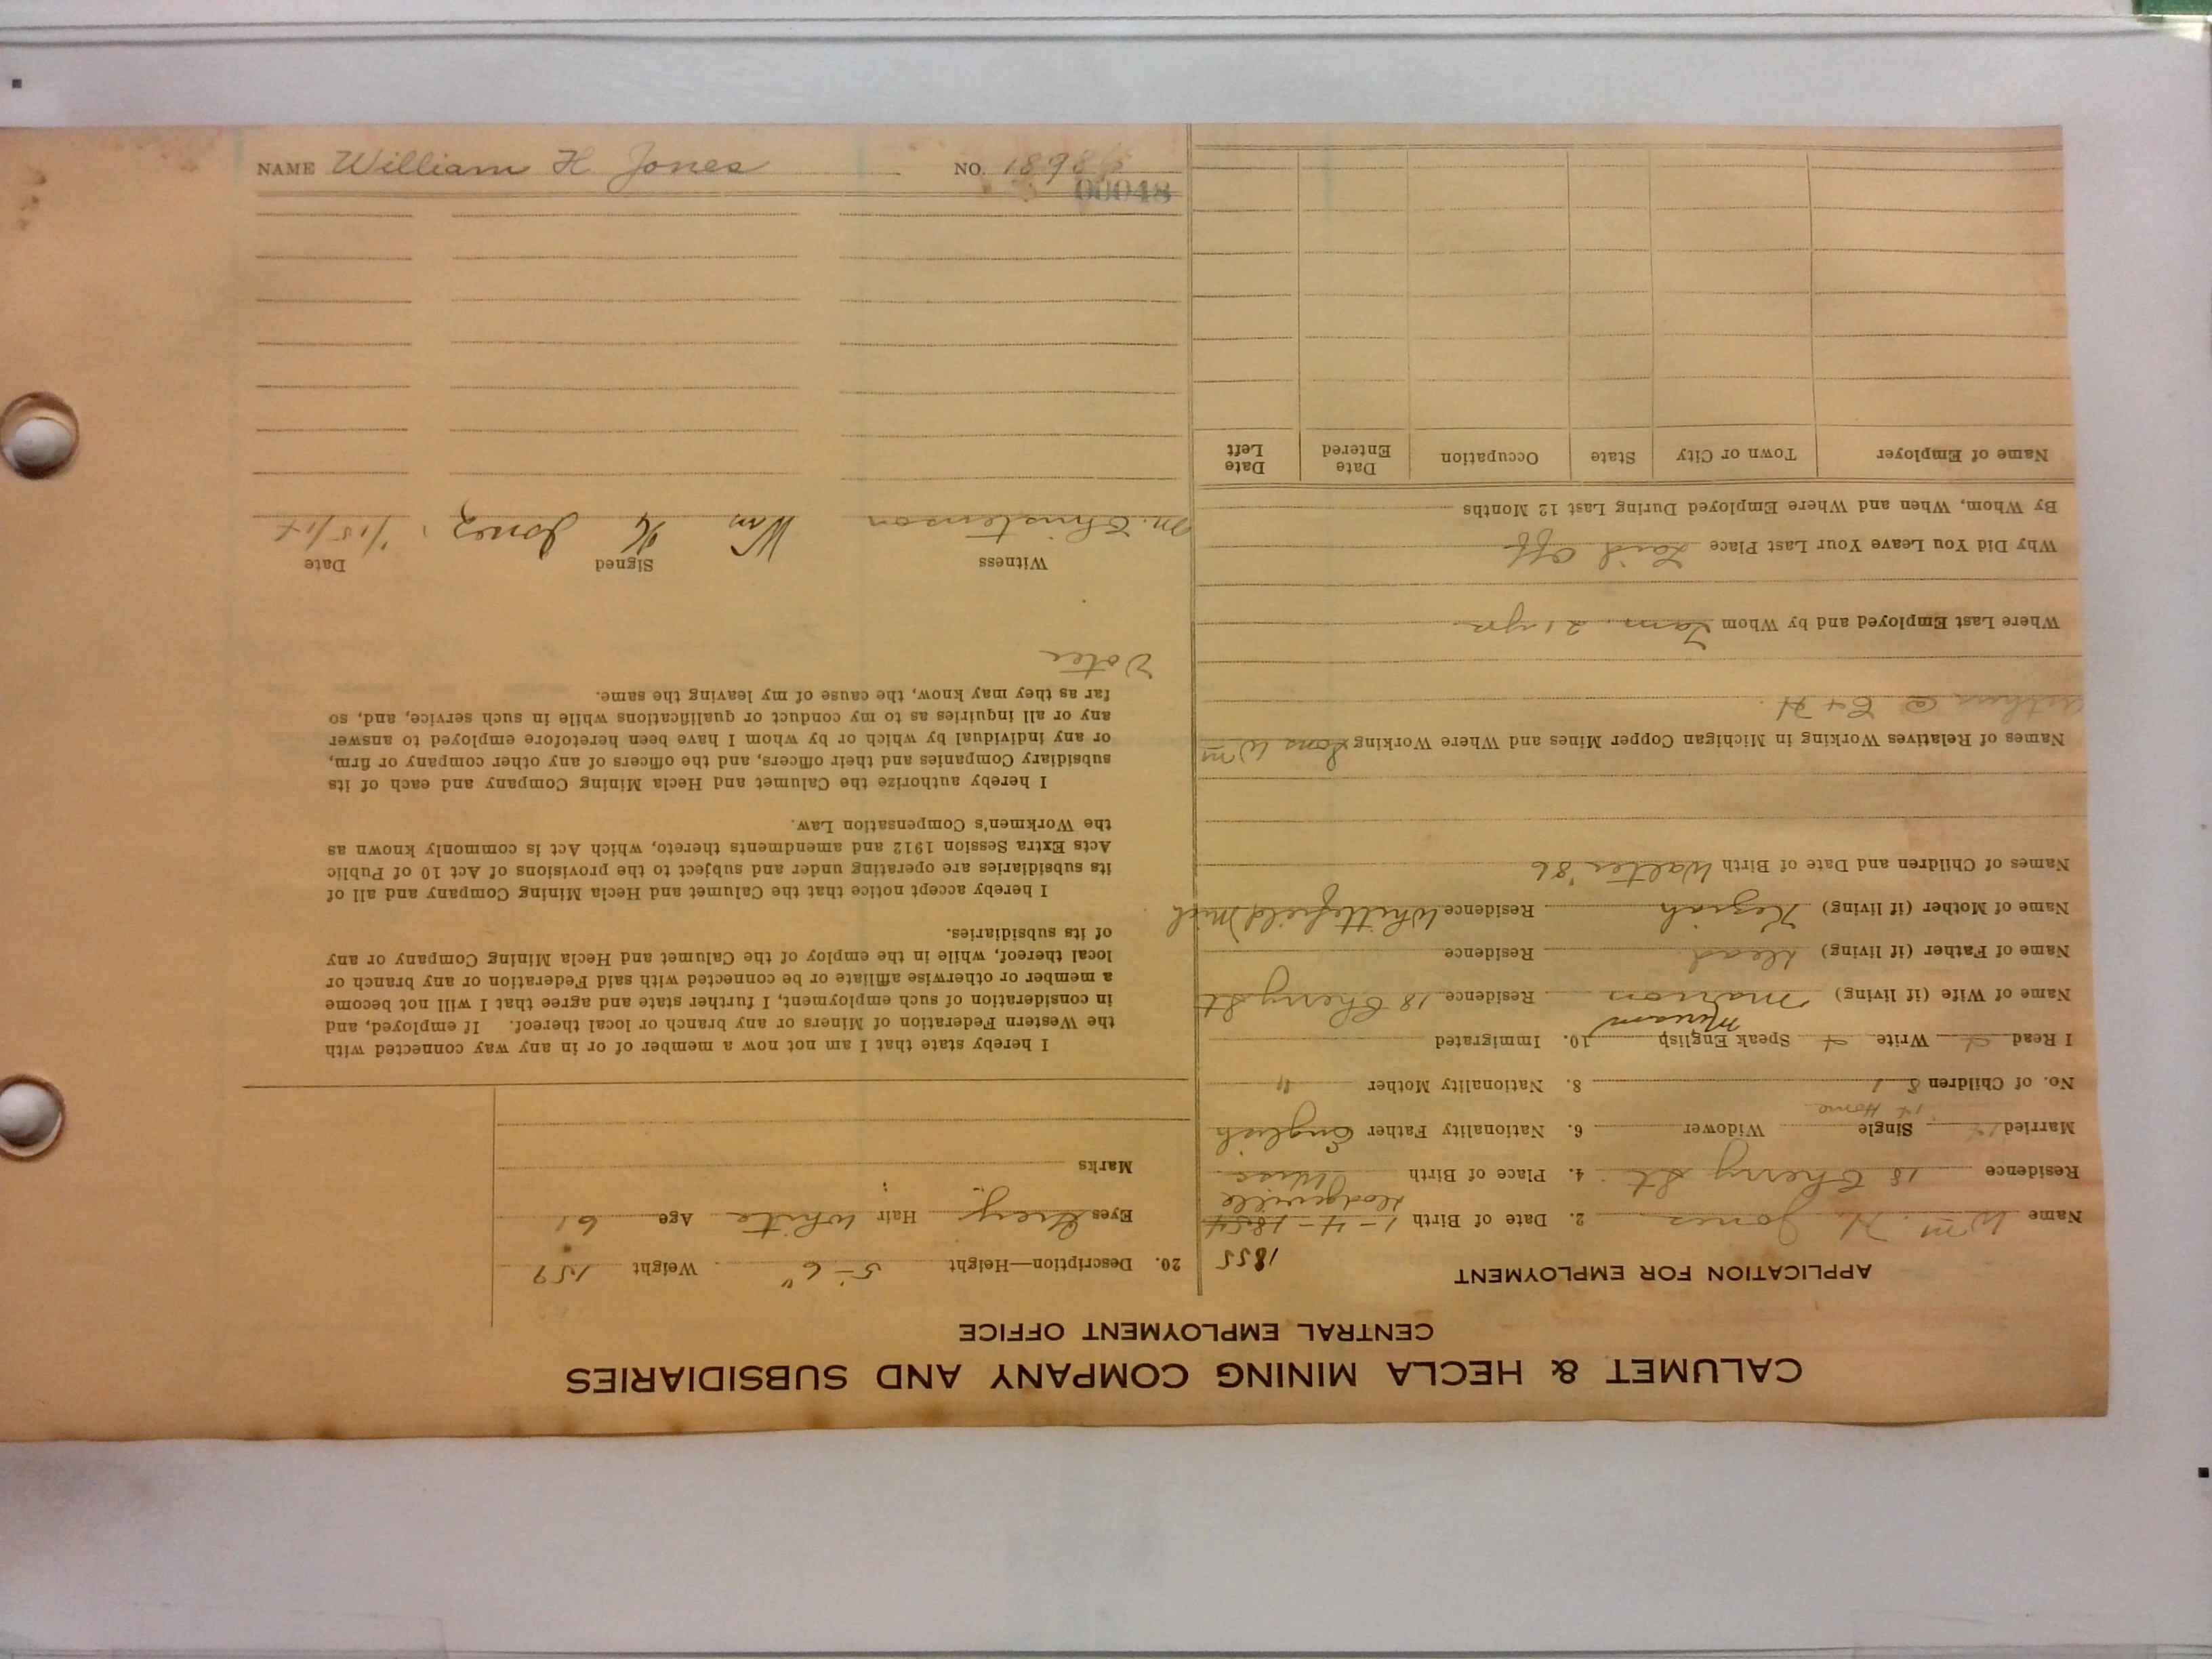 CALUMET & HECLA MINING COMPANY AND SUBSIDIARIES
CENTRAL EMPLOYMENT OFFICE
APPLICATION FOR EMPLOYMENT
1855
Name Wm. H. Jones 2. Date of Birth 1-4-1854
Residence 18 Cherry St. 4. Place of Birth Dodgeville Wisc
Married Single Widower 6. Nationality Father English
1 at Home
No. of Children 8 8. Nationality Mother "
I Read Write Speak English 10. Immigrated
Miriam
Name of Wife (if living) Marion Residence 18 Cherry St
Name of Father (if living) Dead Residence
Name of Mother (if living) Keziah Residence Whittlefield Mich
Names of Children and Date of Birth Walter '86
Names of Relatives Working in Michigan Copper Mines and Where Working Sons Wm
Arthur @ C + H.
Where Last Employed and by Whom Tam. 21 yrs
Why Did You Leave Your Last Place Laid Off
By Whom, When and Where Employed During Last 12 Months
Name of Employer Town or City State Occupation Date Entered Date Left
20. Description—Height 5-6" Weight 159
Eyes Grey Hair White Age 61
Marks
I hereby state that I am not now a member of or in any way connected with
the Western Federation of Miners or any branch or local thereof. If employed, and
in consideration of such employment, I further state and agree that I will not become
a member or otherwise affiliate or be connected with said Federation or any branch or
local thereof, while in the employ of the Calumet and Hecla Mining Company or any
of its subsidiaries.
I hereby accept notice that the Calumet and Hecla Mining Company and all of
its subsidiaries are operating under and subject to the provisions of Act 10 of Public
Acts Extra Session 1912 and amendments thereto, which Act is commonly known as
the Workmen's Compensation Law.
I hereby authorize the Calumet and Hecla Mining Company and each of its
subsidiary Companies and their officers, and the officers of any other company or firm,
or any individual by which or by whom I have been heretofore employed to answer
any or all inquiries as to my conduct or qualifications while in such service, and, so
far as they may know, the cause of my leaving the same.
Voter
Witness Signed Date
M. Christenson Wm H Jones
NAME William H. Jones NO.
00048